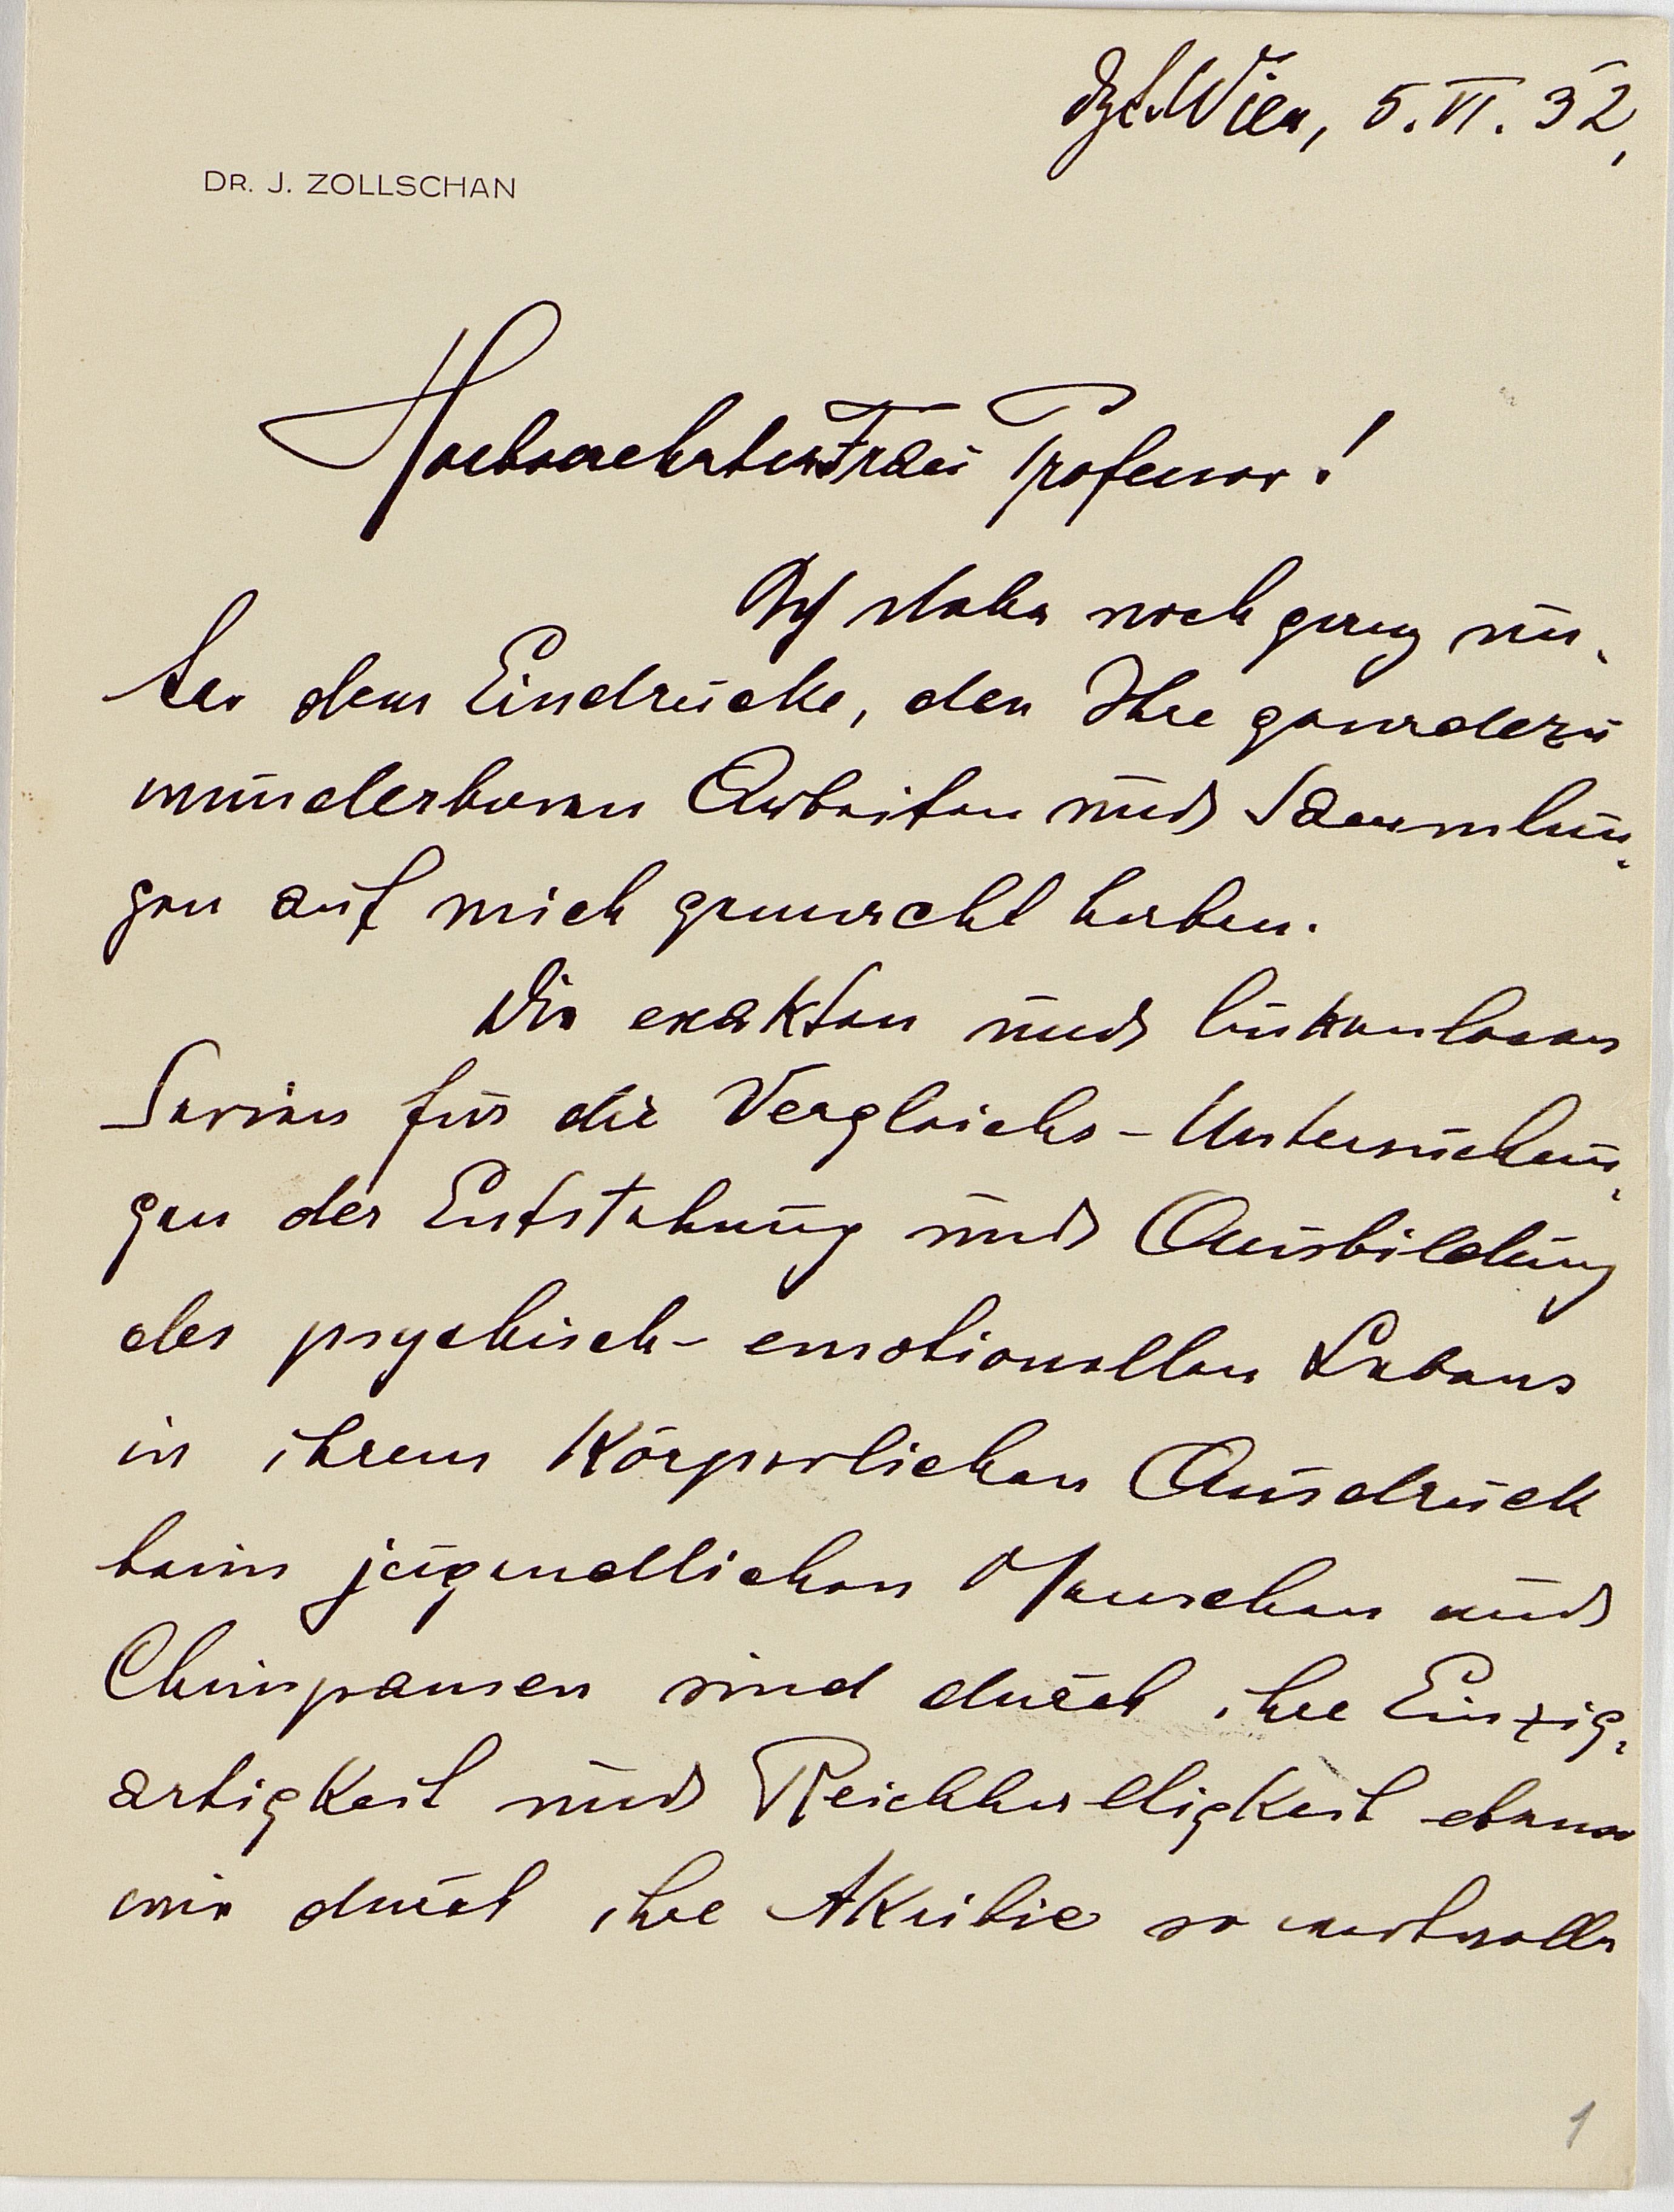 dzt. Wien, 5. VI. 32,
DR. J. ZOLLSCHAN
Hochverehrte Frau Professor!
Ich stehe noch ganz un-
ter dem Eindrucke, den Ihre geradezu
wunderbaren Arbeiten und Sammlun-
gen auf mich gemacht haben.
Die exakten und lückenlosen
Serien für die Vergleichs-Untersuchun-
gen der Entstehung und Ausbildung
des psychisch-emotionellen Lebens
in ihrem Körperlichen Ausdruck
beim jugendlichen Menschen und
Chimpansen sind durch ihre Einzig-
artigkeit und Reichhaltigkeit ebenso
wie durch ihre Akribie so wertvolle
1